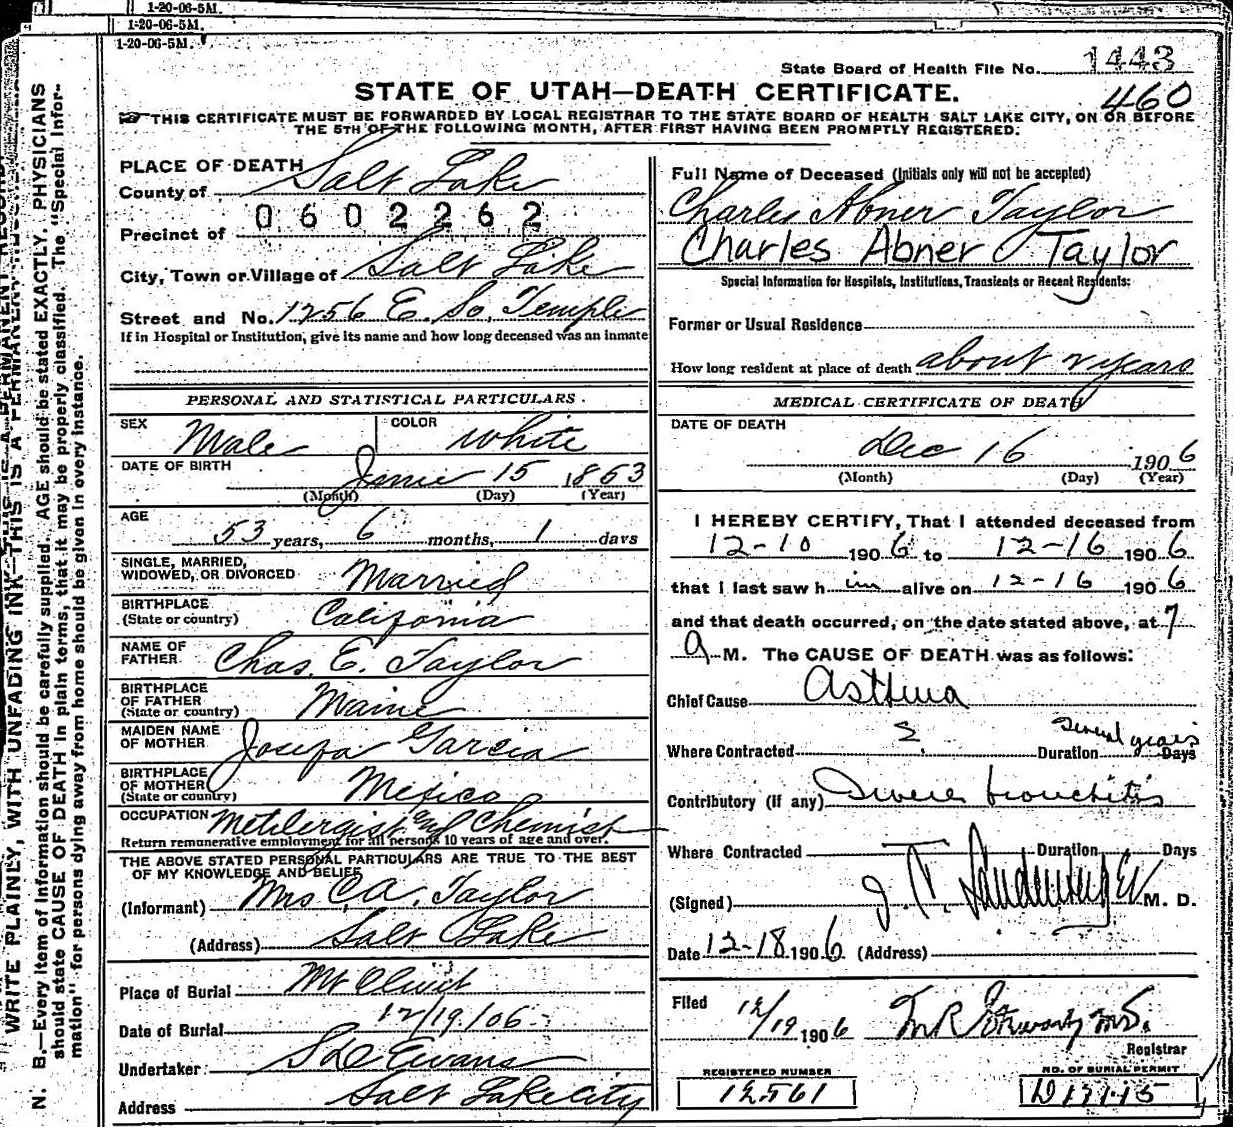 1-20-06-5M.
1-20-06-5M.
1-20-06-5M.
State Board of Health File No. 1443
460
STATE OF UTAH—DEATH CERTIFICATE.
THIS CERTIFICATE MUST BE FORWARDED BY LOCAL REGISTRAR TO THE STATE BOARD OF HEALTH SALT LAKE CITY, ON OR BEFORE
THE 5TH OF THE FOLLOWING MONTH, AFTER FIRST HAVING BEEN PROMPTLY REGISTERED.
PLACE OF DEATH
County of Salt Lake
0602262
Precinct of
City, Town or Village of Salt Lake
Street and No. 1256 E. So. Temple
If in Hospital or Institution, give its name and how long deceased was an inmate
PERSONAL AND STATISTICAL PARTICULARS.
SEX Male COLOR White
DATE OF BIRTH June 15 1853
(Month) (Day) (Year)
AGE
53 years, 6 months, 1 days
SINGLE, MARRIED,
WIDOWED, OR DIVORCED Married
BIRTHPLACE
(State or country) California
NAME OF
FATHER Chas. E. Taylor
BIRTHPLACE
OF FATHER
(State or country) Maine
MAIDEN NAME
OF MOTHER Josefa Garcia
BIRTHPLACE
OF MOTHER
(State or country) Mexico
OCCUPATION Metlergist and Chemist
Return remunerative employment for all persons 10 years of age and over.
THE ABOVE STATED PERSONAL PARTICULARS ARE TRUE TO THE BEST
OF MY KNOWLEDGE AND BELIEF
(Informant) Mrs C.A. Taylor
(Address) Salt Lake
Place of Burial Mt Olivet
Date of Burial 12/19/06
Undertaker Evans
Address Salt Lake City
Full Name of Deceased (Initials only will not be accepted)
Charles Abner Taylor
Charles Abner Taylor
Special Information for Hospitals, Institutions, Transients or Recent Residents:
Former or Usual Residence
How long resident at place of death about 2 years
MEDICAL CERTIFICATE OF DEATH
DATE OF DEATH
Dec 16 1906
(Month) (Day) (Year)
I HEREBY CERTIFY, That I attended deceased from
12-10 1906 to 12-16 1906
that I last saw him alive on 12-16 1906
and that death occurred, on the date stated above, at 7
A M. The CAUSE OF DEATH was as follows:
Chief Cause Asthma
Where Contracted Duration Several years Days
Contributory (if any) Severe bronchitis
Where Contracted Duration Days
(Signed) M. D.
Date 12-18 1906 (Address)
Filed 12/19 1906
Registrar
REGISTERED NUMBER
12561
NO. OF BURIAL PERMIT
N. B.—Every item of information should be carefully supplied. AGE should be stated EXACTLY. PHYSICIANS
should state CAUSE OF DEATH in plain terms, that it may be properly classified. The "Special Infor-
mation" for persons dying away from home should be given in every instance.
WRITE PLAINLY, WITH UNFADING INK—THIS IS A PERMANENT RECORD